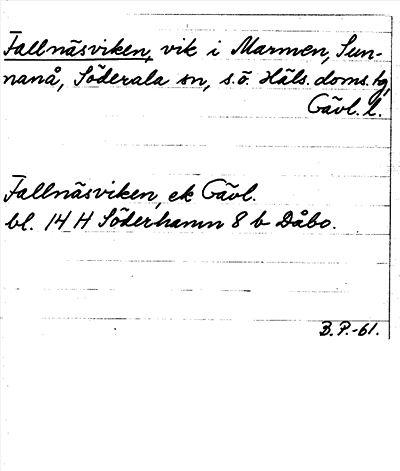 Fallnäsviken, vik i Marmen, Sun-
nanå, Söderala sn, s.ö. Häls. doms.tg,
Gävl. l.
Fallnäsviken, ek Gävl.
bl. 14 H Söderhamn 8 b Dåbo.
B.P.-61.